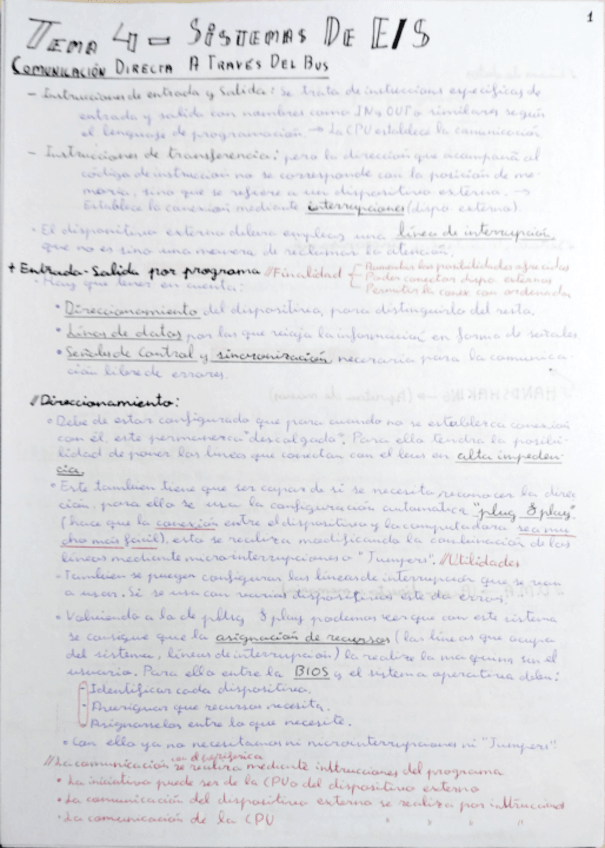 1
Tema 4 - Sistemas De E/S
Comunicación Directa A Través Del Bus
- Instrucciones de entrada y Salida: Se trata de instrucciones específicas de
entrada y salida con nombres como IN y OUT o similares según
el lenguaje de programación. → La CPU establece la comunicación
- Instrucciones de transferencia: pero la dirección que acompaña al
código de instrucción no se corresponde con la posición de me-
moria, sino que se refiere a un dispositivo externo. →
Establece la conexión mediante interrupciones (dispo. externo).
• El dispositivo externo debera emplear una línea de interrupción,
que no es sino una manera de reclamar la atención.
+ Entrada-Salida por programa //Finalidad - Aumentar las posibilidades ofrecidas
- Poder conectar dispo. externos
- Permitir la conex con ordenador
• Hay que tener en cuenta:
• Direccionamiento del dispositivo, para distinguirlo del resto.
• Líneas de datos por las que viaja la información en forma de señales.
• Señales de Control y sincronización necesaria para la comunica-
ción libre de errores.
//Direccionamiento:
• Debe de estar configurado que para cuando no se establezca conexión
con él, este permanezca "descolgado". Para ello tendra la posibi-
lidad de poner las líneas que conectan con el bus en alta impeden-
cia.
• Este tambien tiene que ser capaz de si se necesita reconocer la direc
ción, para ello se usa la configuración automática "plug & play"
(hace que la conexión entre el dispositivo y la computadora sea mu
cho mas facil), esto se realiza modificando la combinación de las
líneas mediante microinterrupciones o "Jumpers". //Utilidades
• Tambien se pueden configurar las líneas de interrupción que se van
a usar. Si se usa con varios dispositivos este da error.
• Volviendo a lo de plug & play podemos ver que con este sistema
se consigue que la asignación de recursos (las líneas que ocupa
del sistema, líneas de interrupción) la realize la maquina sin el
usuario. Para ello entre la BIOS y el sistema operativo deben:
- Identificar cada dispositivo.
- Averiguar que recursos necesita.
- Asignarselos entre lo que necesite.
• Con ello ya no necesitamos ni microinterrupciones ni "Jumpers"
//La comunicación con el periferico se realiza mediante intrucciones del programa
• La iniciativa puede ser de la CPU o del dispositivo externo
• La comunicación del dispositivo externo se realiza por intrucciones
• La comunicación de la CPU " " "